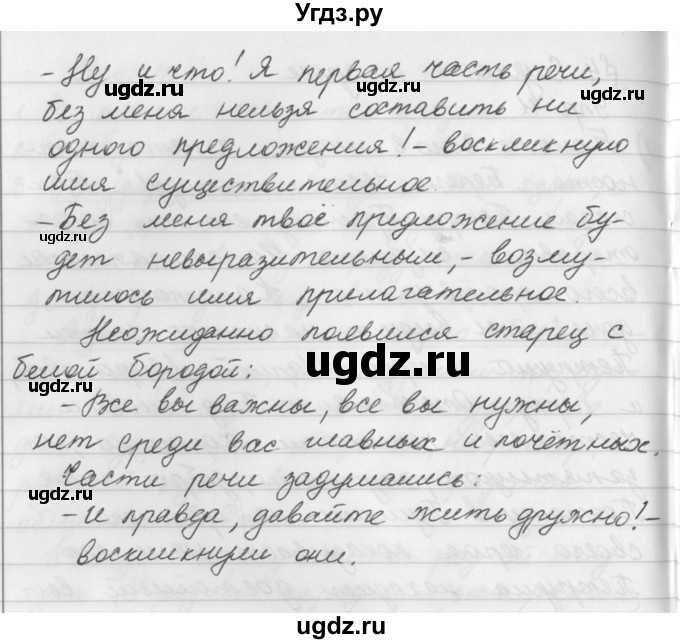 Угдз.ру
- Ну и что! Я первая часть речи,
ugdz.ru
ugdz.ru
без меня нельзя составить ни
одного предложения! - воскликнуло
имя существительное.
ugdz.ru
- Без меня твоё предложение бу-
ugdz.ru
дет невыразительным, - возму-
тилось имя прилагательное.
Неожиданно появился старец с
белой бородой:
ugdz.ru
ugdz.ru
- Все вы важны, все вы нужны,
нет среди вас главных и почётных.
Части речи задумались:
ugdz.ru
- И правда, давайте жить дружно! -
воскликнули они.
ugdz.ru
ugdz.ru